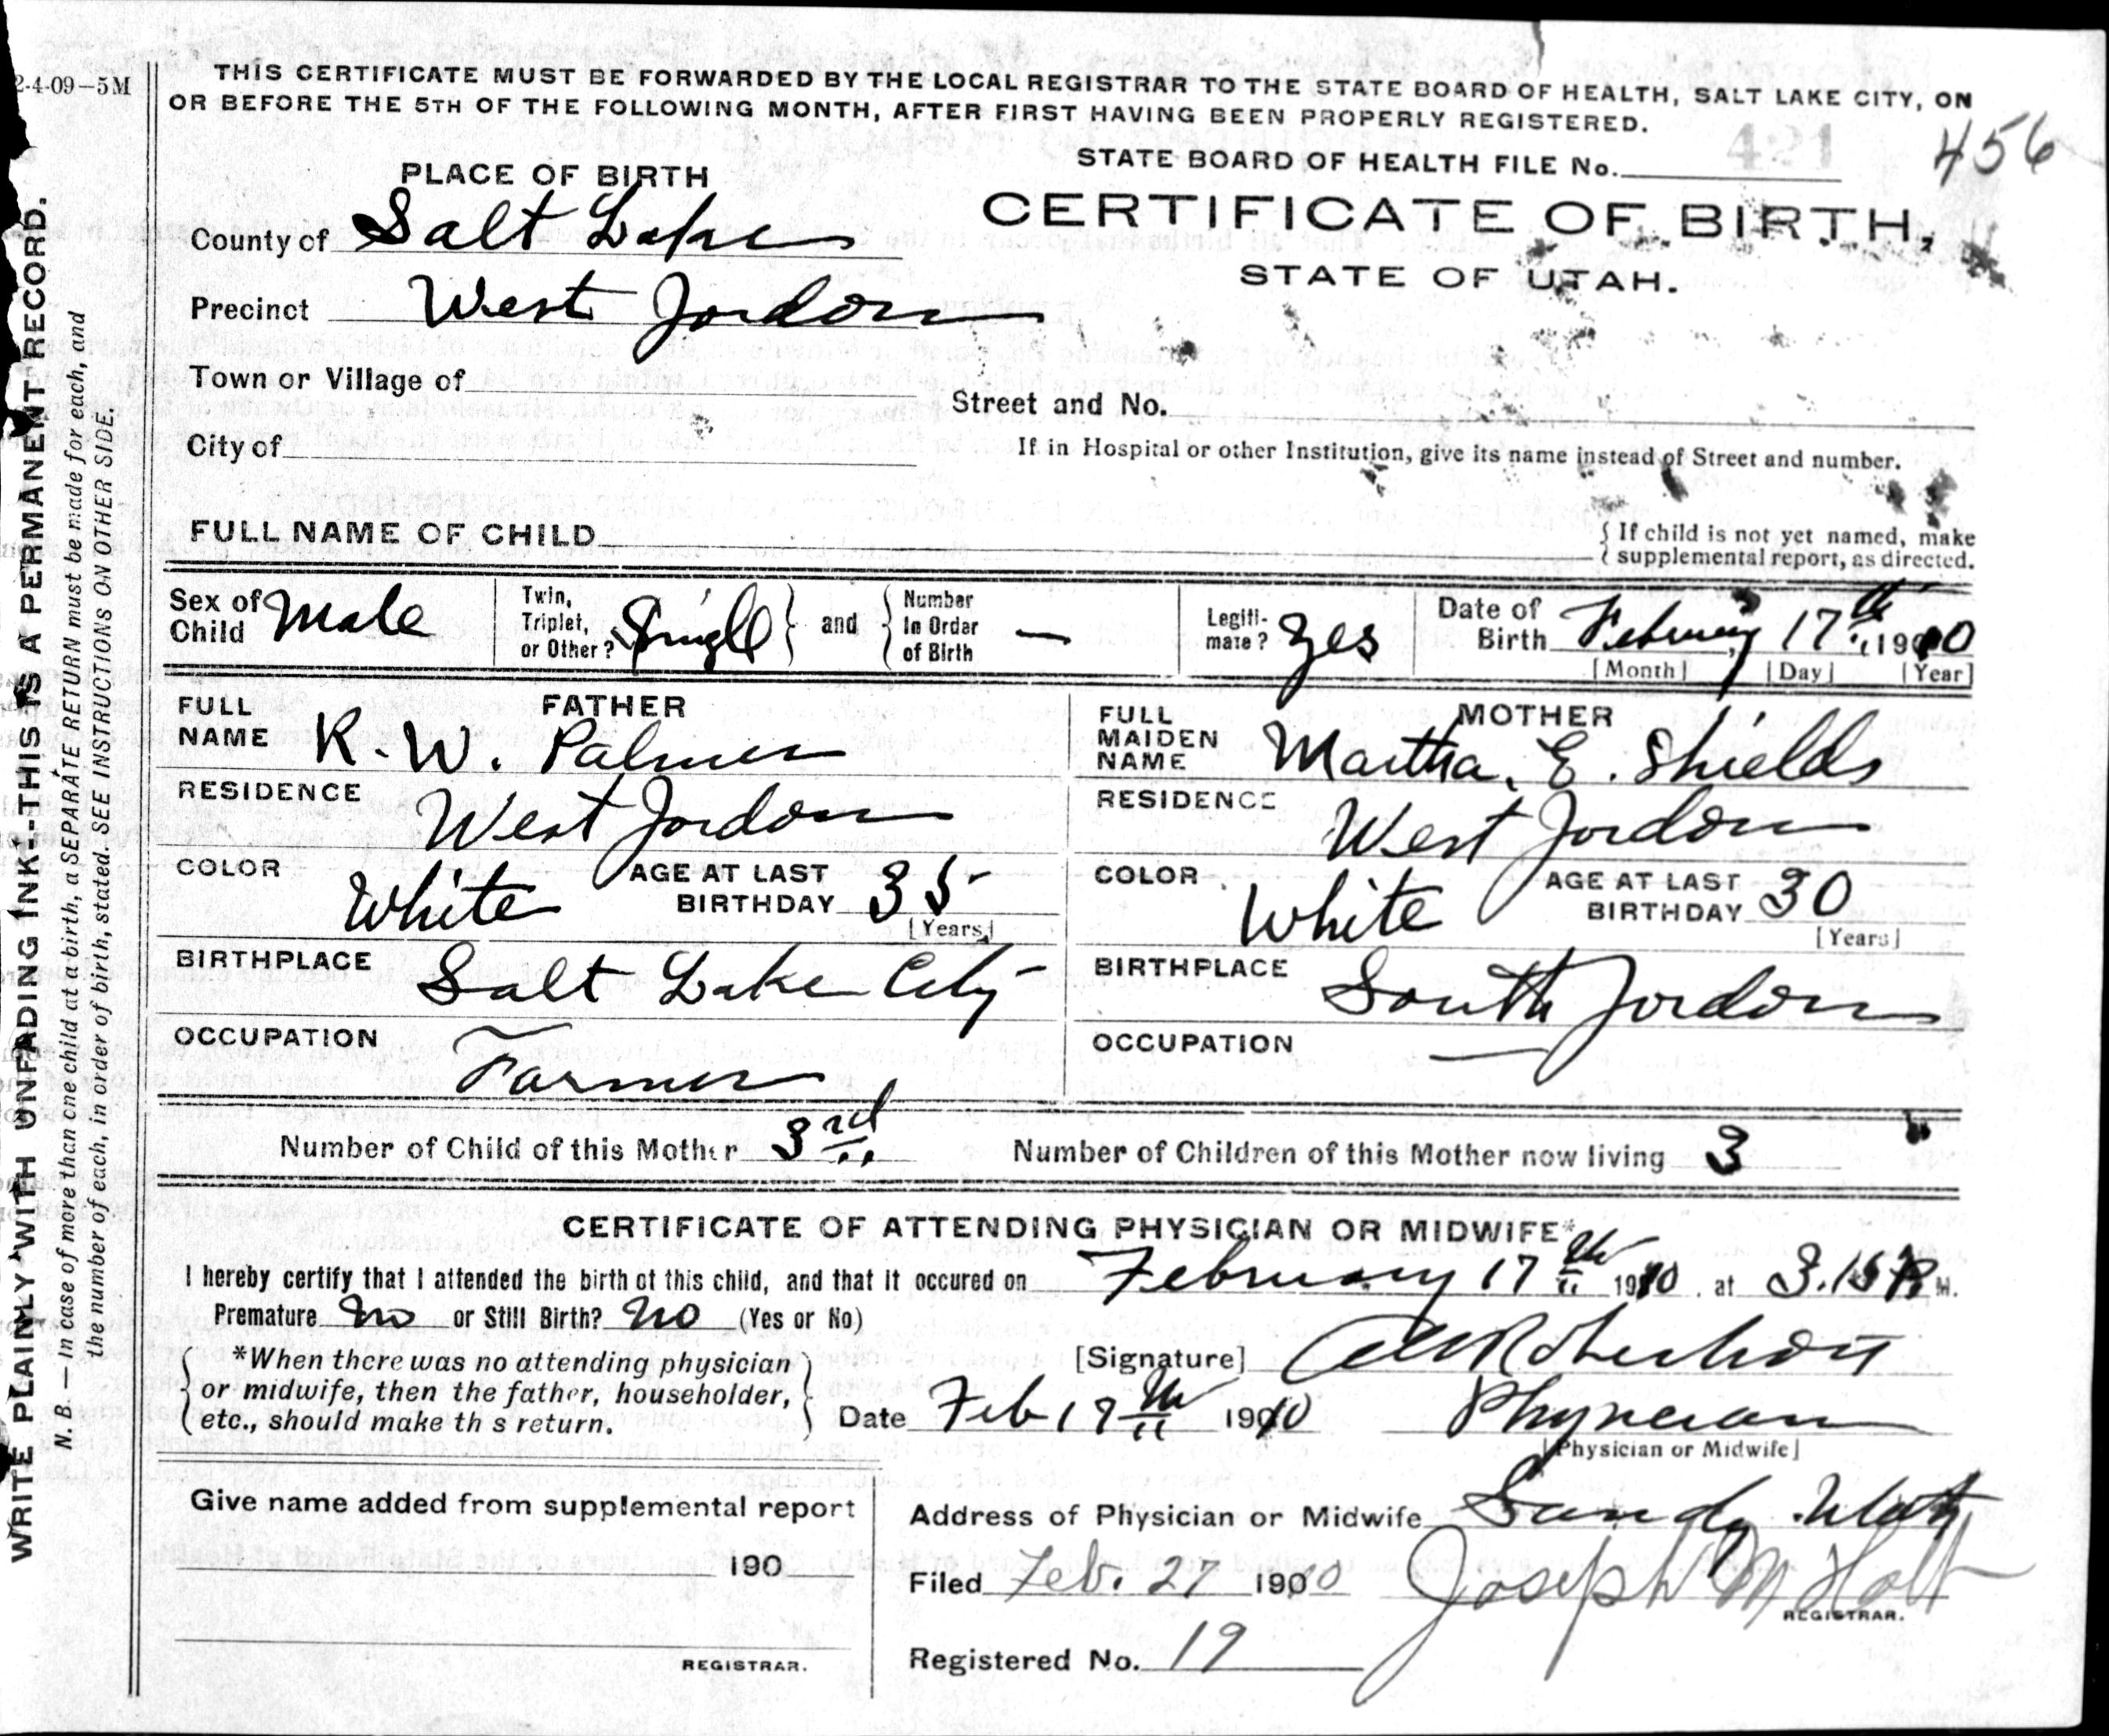 2-4-09-5M
THIS CERTIFICATE MUST BE FORWARDED BY THE LOCAL REGISTRAR TO THE STATE BOARD OF HEALTH, SALT LAKE CITY, ON
OR BEFORE THE 5TH OF THE FOLLOWING MONTH, AFTER FIRST HAVING BEEN PROPERLY REGISTERED.
STATE BOARD OF HEALTH FILE No. 421 456
PLACE OF BIRTH
CERTIFICATE OF BIRTH,
STATE OF UTAH.
County of Salt Lake
Precinct West Jordan
Town or Village of
Street and No.
City of
If in Hospital or other Institution, give its name instead of Street and number.
FULL NAME OF CHILD
{ If child is not yet named, make
supplemental report, as directed.
Sex of Child Male
Twin, Triplet, or Other? Single } and { Number In Order of Birth —
Legiti-mate? Yes
Date of Birth February 17th 1910
[Month] [Day] [Year]
FATHER
FULL NAME R. W. Palmer
RESIDENCE West Jordan
COLOR White AGE AT LAST BIRTHDAY 35
[Years]
BIRTHPLACE Salt Lake City
OCCUPATION Farmer
MOTHER
FULL MAIDEN NAME Martha. E. Shields
RESIDENCE West Jordan
COLOR White AGE AT LAST BIRTHDAY 30
[Years]
BIRTHPLACE South Jordan
OCCUPATION —
Number of Child of this Mother 3rd Number of Children of this Mother now living 3
CERTIFICATE OF ATTENDING PHYSICIAN OR MIDWIFE*
I hereby certify that I attended the birth of this child, and that it occured on February 17th 1910 at 3.15 P. M.
Premature No or Still Birth? No (Yes or No)
{ *When there was no attending physician
or midwife, then the father, householder,
etc., should make th s return. }
[Signature] Robertson
Date Feb 19th 1910 Physician
[Physician or Midwife]
Give name added from supplemental report
190
REGISTRAR.
Address of Physician or Midwife Sandy Utah
Filed Feb. 27 1910 Joseph M Holt
REGISTRAR.
Registered No. 19
WRITE PLAINLY WITH UNFADING INK--THIS IS A PERMANENT RECORD.
N. B. — In case of more than one child at a birth, a SEPARATE RETURN must be made for each, and
the number of each, in order of birth, stated. SEE INSTRUCTIONS ON OTHER SIDE.